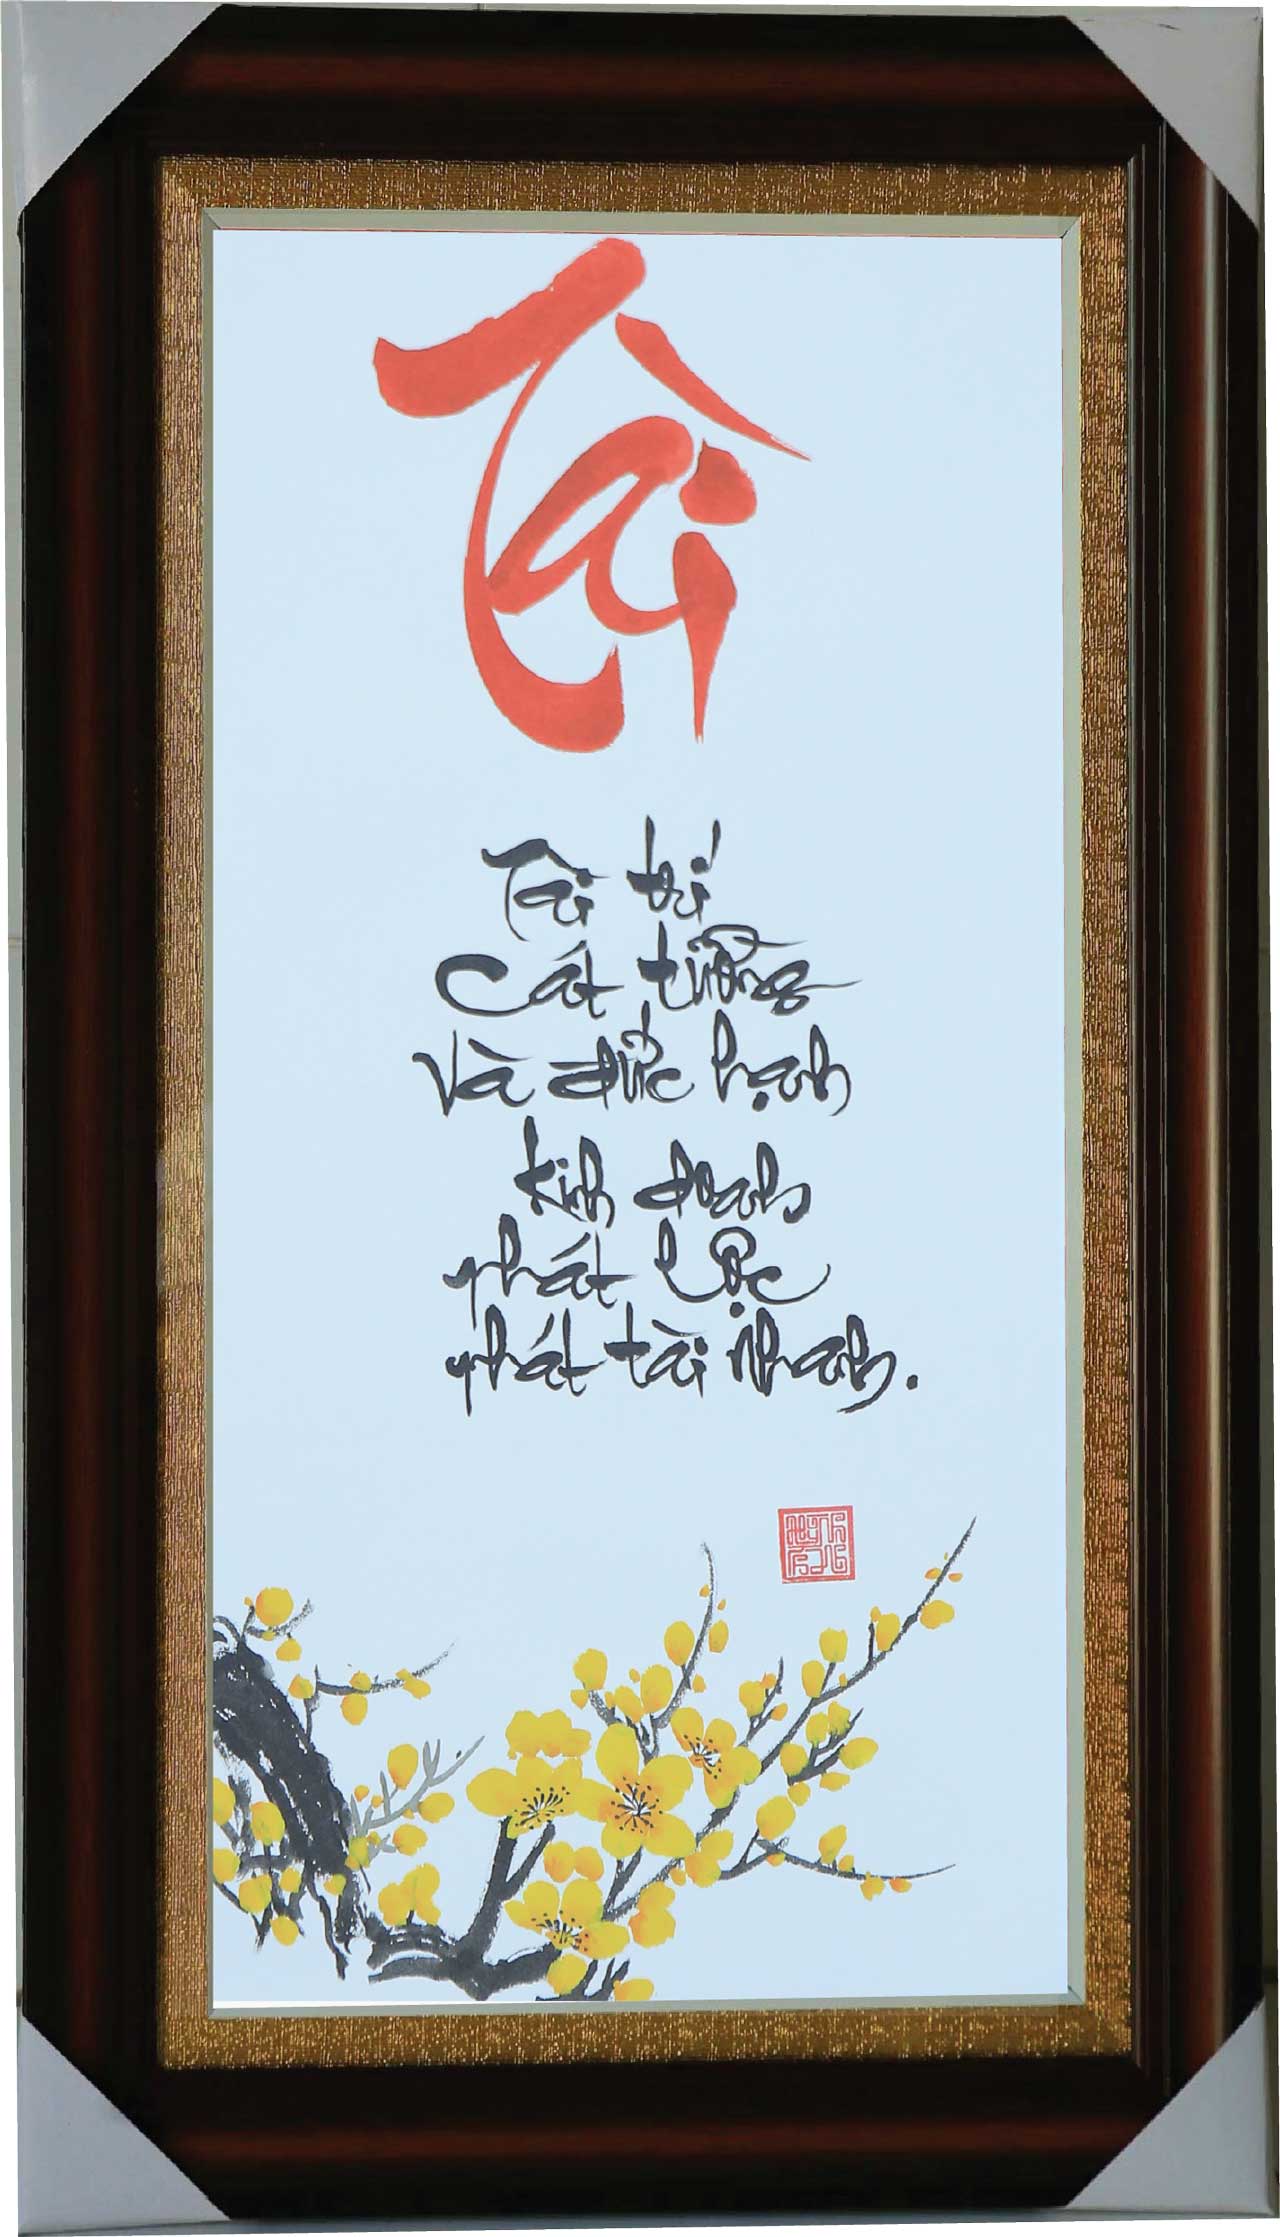 Tài
Tài trí
Cát tường
Và đức hạnh
kinh doanh
phát lộc
phát tài nhanh.